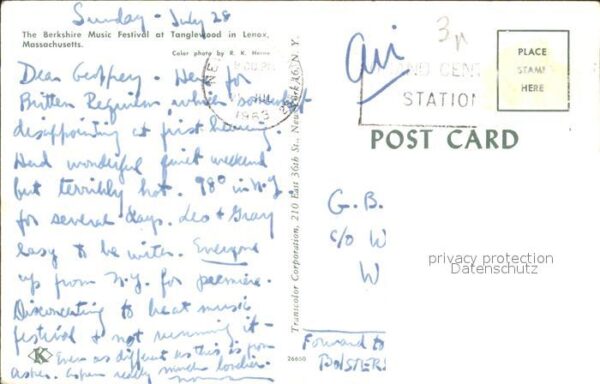 Sunday - July 28
The Berkshire Music Festival at Tanglewood in Lenox,
Massachusetts.
Color photo by R. K. Horne
Dear Geoffrey - Here for
Britten Requiem which somewhat
disappointing at first hearing
Had wonderful quiet weekend
but terribly hot. 98° in N.Y.
for several days. Leo & Gray
easy to be with. Everyone
up from N.Y. for premiere.
Disconcerting to be at music
festival & not running it -
K Even as different as this is from
Aspen. Aspen really much lovelier.
Transcolor Corporation, 210 East 36th St., New York 16, N. Y.
1963
26650
air
GRAND CENT
STATION
PLACE
STAMP
HERE
POST CARD
G. B.
c/o W
W
privacy protection
Datenschutz
Forward to